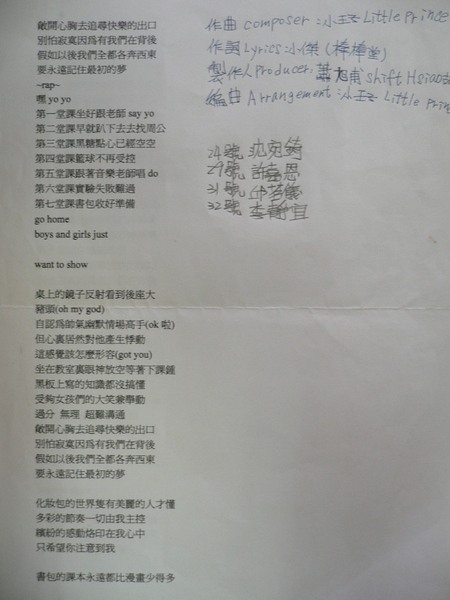 敞開心胸去追尋快樂的出口
別怕寂寞因為有我們在背後
假如以後我們全都各奔西東
要永遠記住最初的夢
~rap~
嘿 yo yo
第一堂課坐好跟老師 say yo
第二堂課早就趴下去去找周公
第三堂課黑糖點心已經空空
第四堂課籃球不再受控
第五堂課跟著音樂老師唱 do
第六堂課實驗失敗難過
第七堂課書包收好準備
go home
boys and girls just
want to show
桌上的鏡子反射看到後座大
豬頭(oh my god)
自認為帥氣幽默情場高手(ok 啦)
但心裏居然對他產生悸動
這感覺該怎麼形容(got you)
坐在教室裏眼神放空等著下課鐘
黑板上寫的知識都沒搞懂
受夠女孩們的大笑兼舉動
過分 無理 超難溝通
敞開心胸去追尋快樂的出口
別怕寂寞因為有我們在背後
假如以後我們全都各奔西東
要永遠記住最初的夢
化妝包的世界隻有美麗的人才懂
多彩的節奏一切由我主控
繽紛的感動烙印在我心中
只希望你注意到我
書包的課本永遠都比漫畫少得多
作曲 composer:小王子 Little Prince
作詞 Lyrics:小傑(棒棒堂)
製作人 Producer: shift Hsiao
編曲 Arrangement:小王子 Little Prin
24號 沈宛錡
29號 許嘉恩
31號
32號 李靜宜